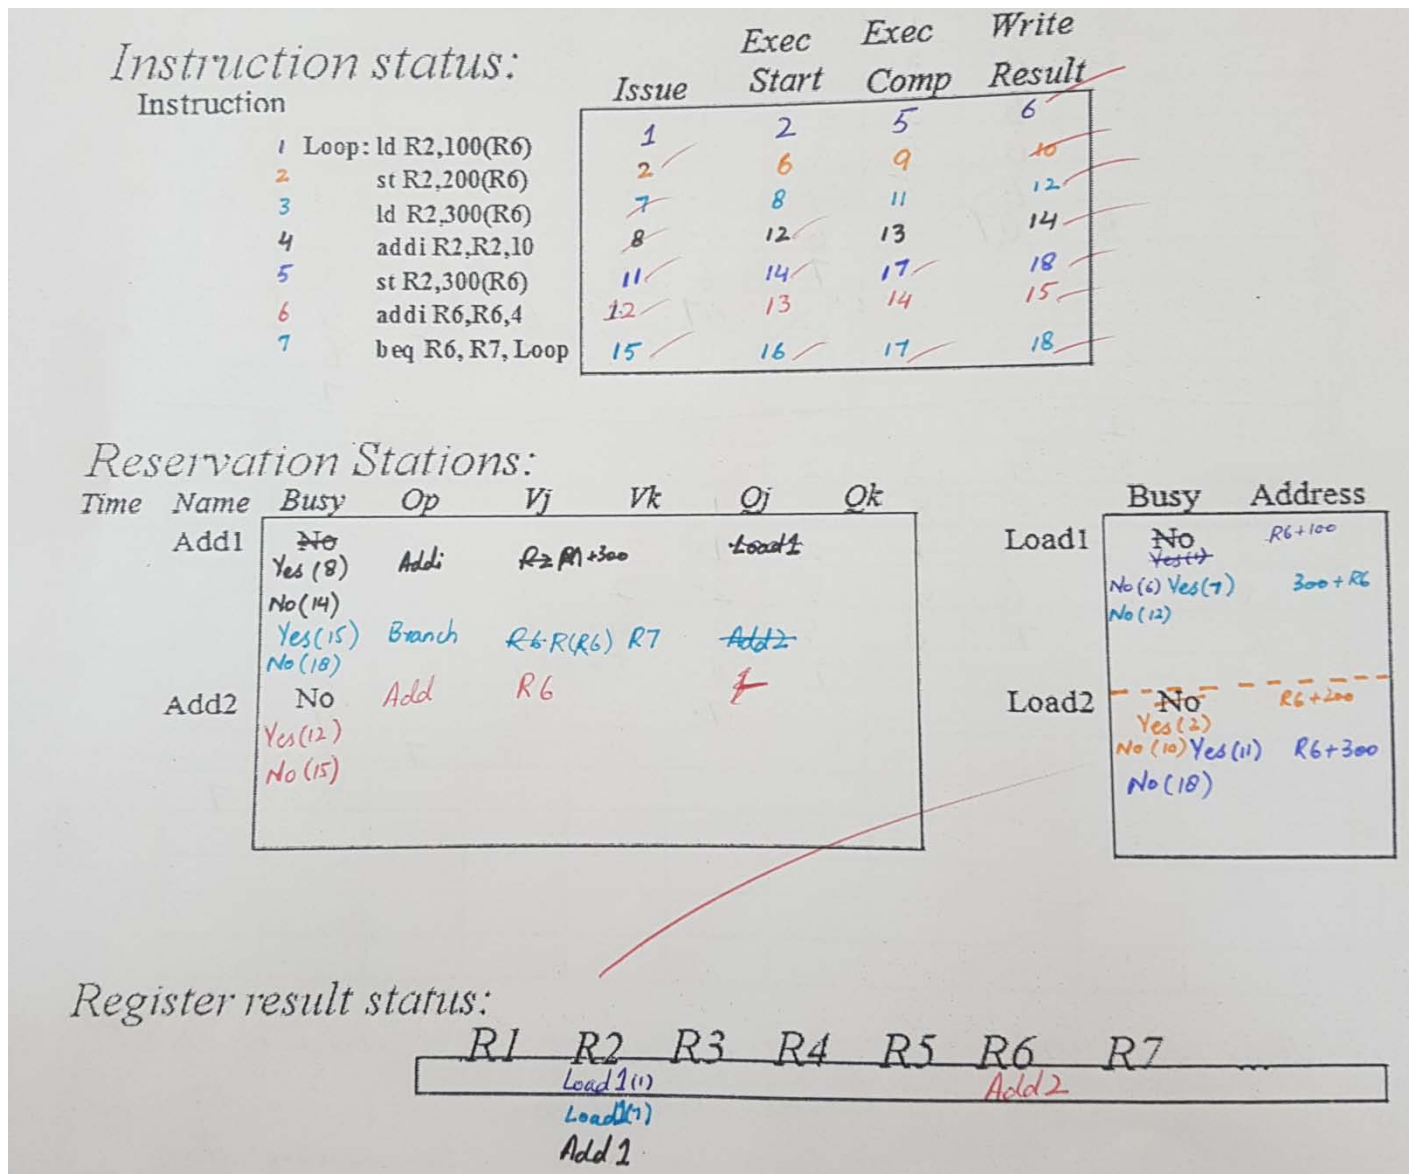 Instruction status:
Instruction Issue Exec Start Exec Comp Write Result
1 Loop: ld R2,100(R6) 1 2 5 6
2 st R2,200(R6) 2 6 9 10
3 ld R2,300(R6) 7 8 11 12
4 addi R2,R2,10 8 12 13 14
5 st R2,300(R6) 11 14 17 18
6 addi R6,R6,4 12 13 14 15
7 beq R6, R7, Loop 15 16 17 18
Reservation Stations:
Time Name Busy Op Vj Vk Qj Qk
Add1 No
Yes (8) Addi R2 M+300 Load1
No(14)
Yes(15) Branch R6 R(R6) R7 Add2
No(18)
Add2 No Add R6
Yes(12)
No(15)
Busy Address
Load1 No R6+100
Yes(1)
No(6) Yes(7) 300+R6
No(12)
Load2 No R6+200
Yes(2)
No(10) Yes(11) R6+300
No(18)
Register result status:
R1 R2 R3 R4 R5 R6 R7 ...
Load1(1) Add2
Load1(7)
Add1